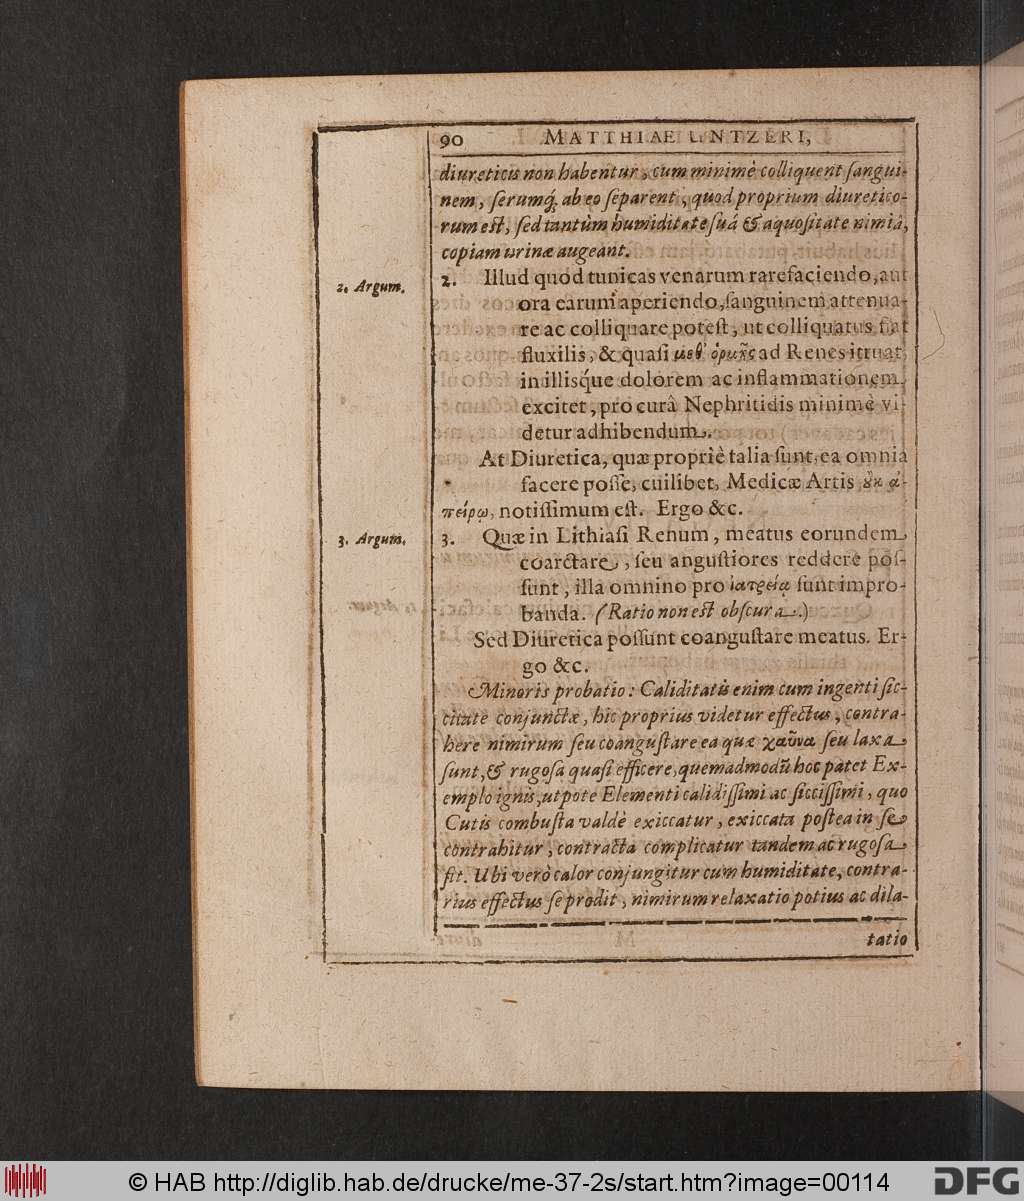 90 MATTHIAE UNTZERI,
diureticis non habentur, cum minimè colliquent sangui-
nem, serumq́; ab eo separent, quod proprium diuretico-
rum est, sed tantùm humiditate suâ & aquositate nimiâ,
copiam urinæ augeant.
2. Argum.
2. Illud quod tunicas venarum rarefaciendo, aut
ora earum aperiendo, sanguinem attenua-
re ac colliquare potest, ut colliquatus fiat
fluxilis, & quasi μεθ' ὁρμῆς ad Renes irruat,
in illisq́ue dolorem ac inflammationem
excitet, pro curâ Nephritidis minimè vi-
detur adhibendum.
At Diuretica, quæ propriè talia sunt, ea omnia
facere posse, cuilibet, Medicæ Artis ȣ̓κ ἀ-
πείρῳ, notissimum est. Ergo &c.
3. Argum.
3. Quæ in Lithiasi Renum, meatus eorundem
coarctare, seu angustiores reddere pos-
sunt, illa omnino pro ἰατρείᾳ sunt impro-
banda. (Ratio non est obscura.)
Sed Diuretica possunt coangustare meatus. Er-
go &c.
Minoris probatio: Caliditatis enim cum ingenti sic-
citate conjunctæ, hic proprius videtur effectus, contra-
here nimirum seu coangustare ea quæ χαῦνα seu laxa
sunt, & rugosa quasi efficere, quemadmodũ hoc patet Ex-
emplo ignis, utpote Elementi calidissimi ac siccissimi, quo
Cutis combusta valdè exiccatur, exiccata postea in se
contrahitur, contracta complicatur tandem ac rugosa
fit. Ubi verò calor conjungitur cum humiditate, contra-
rius effectus se prodit, nimirum relaxatio potius ac dila-
tatio
© HAB http://diglib.hab.de/drucke/me-37-2s/start.htm?image=00114
DFG